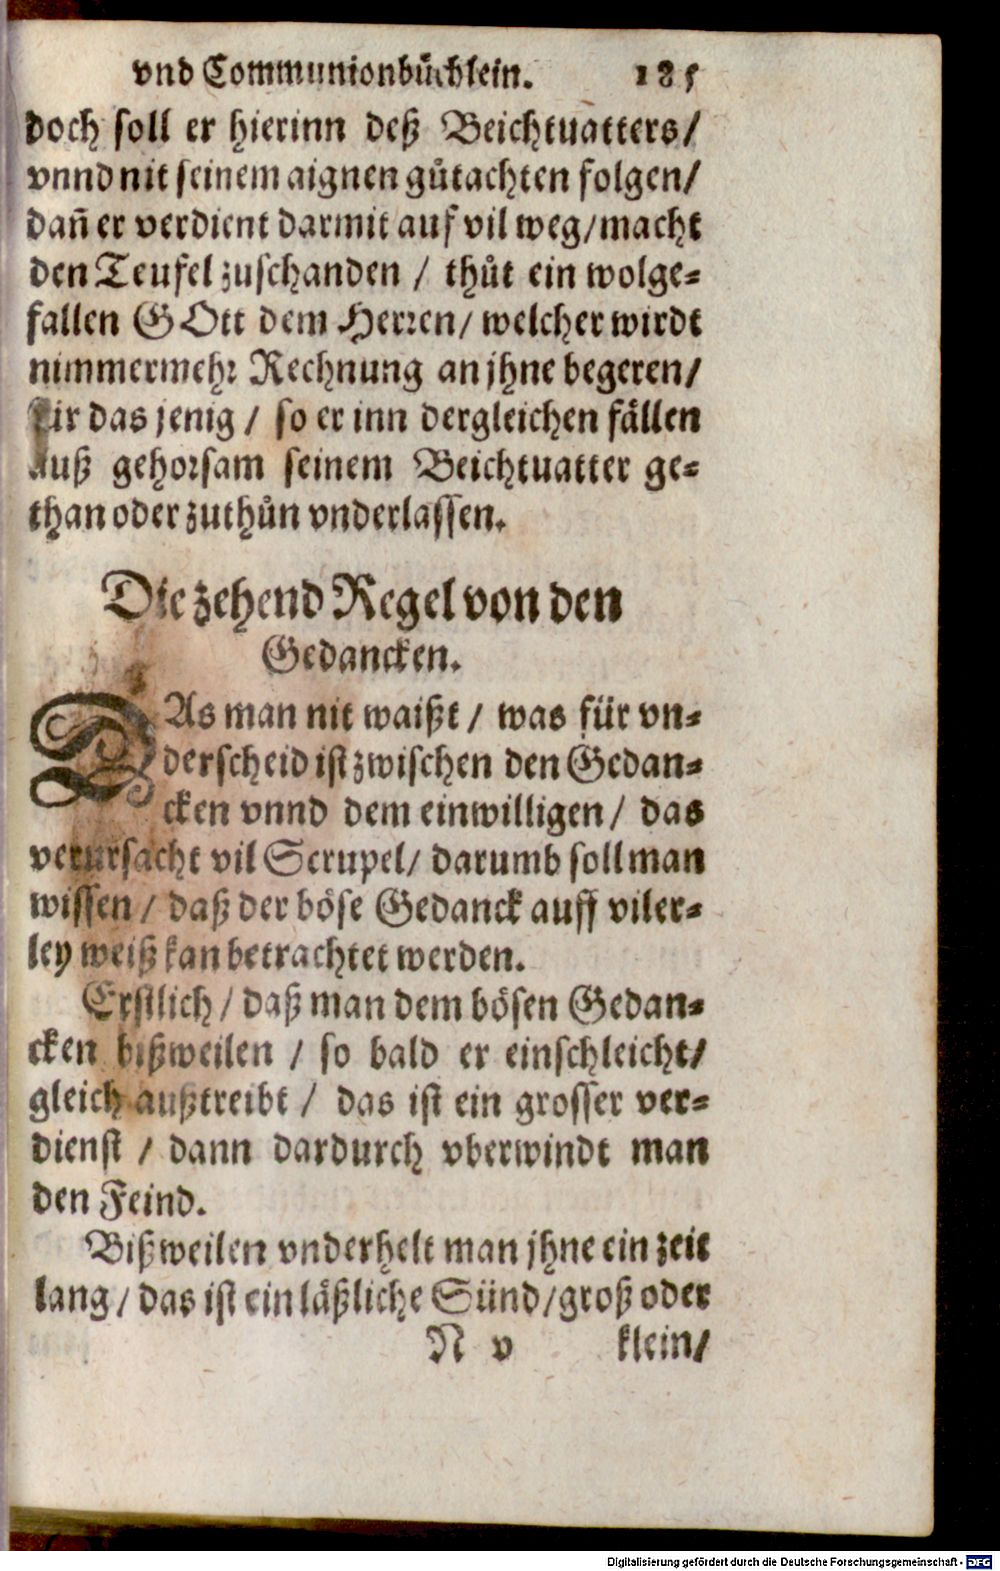 vnd Communionbuͤchlein. 185
doch soll er hierinn deß Beichtuatters/
vnnd nit seinem aignen guͦtachten folgen/
dañ er verdient darmit auf vil weg/macht
den Teufel zuschanden / thuͦt ein wolge⸗
fallen GOtt dem Herren/ welcher wirdt
nimmermehr Rechnung an jhne begeren/
für das jenig / so er inn dergleichen faͤllen
auß gehorsam seinem Beichtuatter ge⸗
than oder zuthuͦn vnderlassen.
Die zehend Regel von den
Gedancken.
DAs man nit waißt / was für vn⸗
derscheid ist zwischen den Gedan⸗
cken vnnd dem einwilligen / das
verursacht vil Scrupel/ darumb soll man
wissen / daß der boͤse Gedanck auff viler⸗
ley weiß kan betrachtet werden.
Erstlich / daß man dem boͤsen Gedan⸗
cken bißweilen / so bald er einschleicht/
gleich außtreibt / das ist ein grosser ver⸗
dienst / dann dardurch vberwindt man
den Feind.
Bißweilen vnderhelt man jhne ein zeit
lang / das ist ein laͤßliche Sünd/groß oder
N v klein/
Digitalisierung gefördert durch die Deutsche Forschungsgemeinschaft - DFG